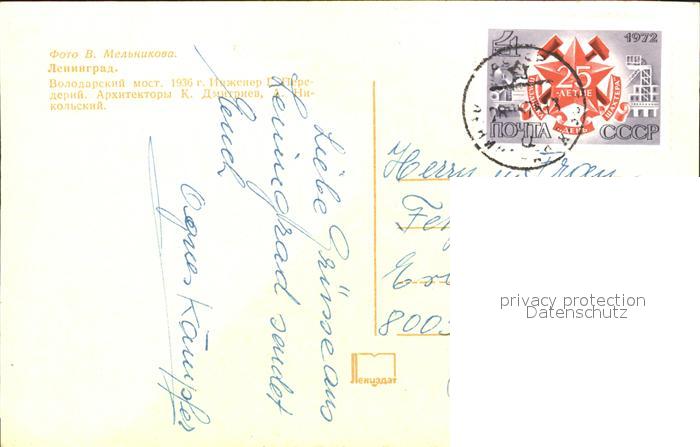 Фото В. Мельникова.
Ленинград.
Володарский мост. 1936 г. Инженер Г. Пере-
дерий. Архитекторы К. Дмитриев, А. Ни-
кольский.
Liebe Grüsse aus
Leningrad sendet
Euch
Agnes Kämpfer
1972
25
-ЛЕТИЕ
ШАХТЕРА
ДЕНЬ
ПОЧТА СССР
Herrn u. Frau
800
Лениздат
privacy protection
Datenschutz